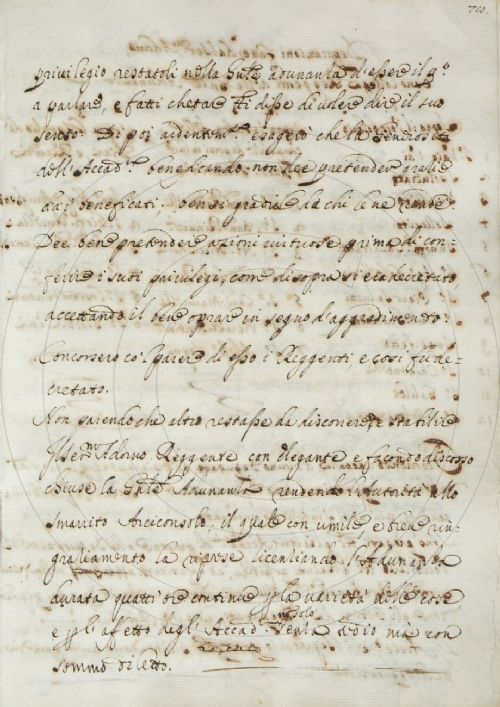 703.
privilegio restatoli nella Gnle Adunanza d'essere il pº
a parlare, e fatti chetare tti disse di voler dire il suo
senso. Di poi ardentemte esagerò che la Generosità
dell'Accadª beneficando non dee pretender gratie
dai beneficati, bensì gradire da chi le ne rende.
Dee bene pretendere azioni virtuose prima di con-
ferire i suoi privilegi, come di sopra si era decretato,
accettando il bene oprare in segno d'aggradimento.
Concorsero co' Parere di esso i Reggenti e così fu de-
cretato.
Non sapendo che altro restasse da discorrere e stabilire
Il Sermº Adorno Reggente con elegante e facondo discorso
chiuse la Gnle Adunanza rendendo l'Autorità allo
Smarrito Arciconsolo, il quale con umile, e breve rin-
graziamento la riprese licentiando l'Adunanza
durata quattr'ore continue p la varietà delle cose,
e p l'afetto degl'Accadci non solo senza tedio mà con
sommo diletto.